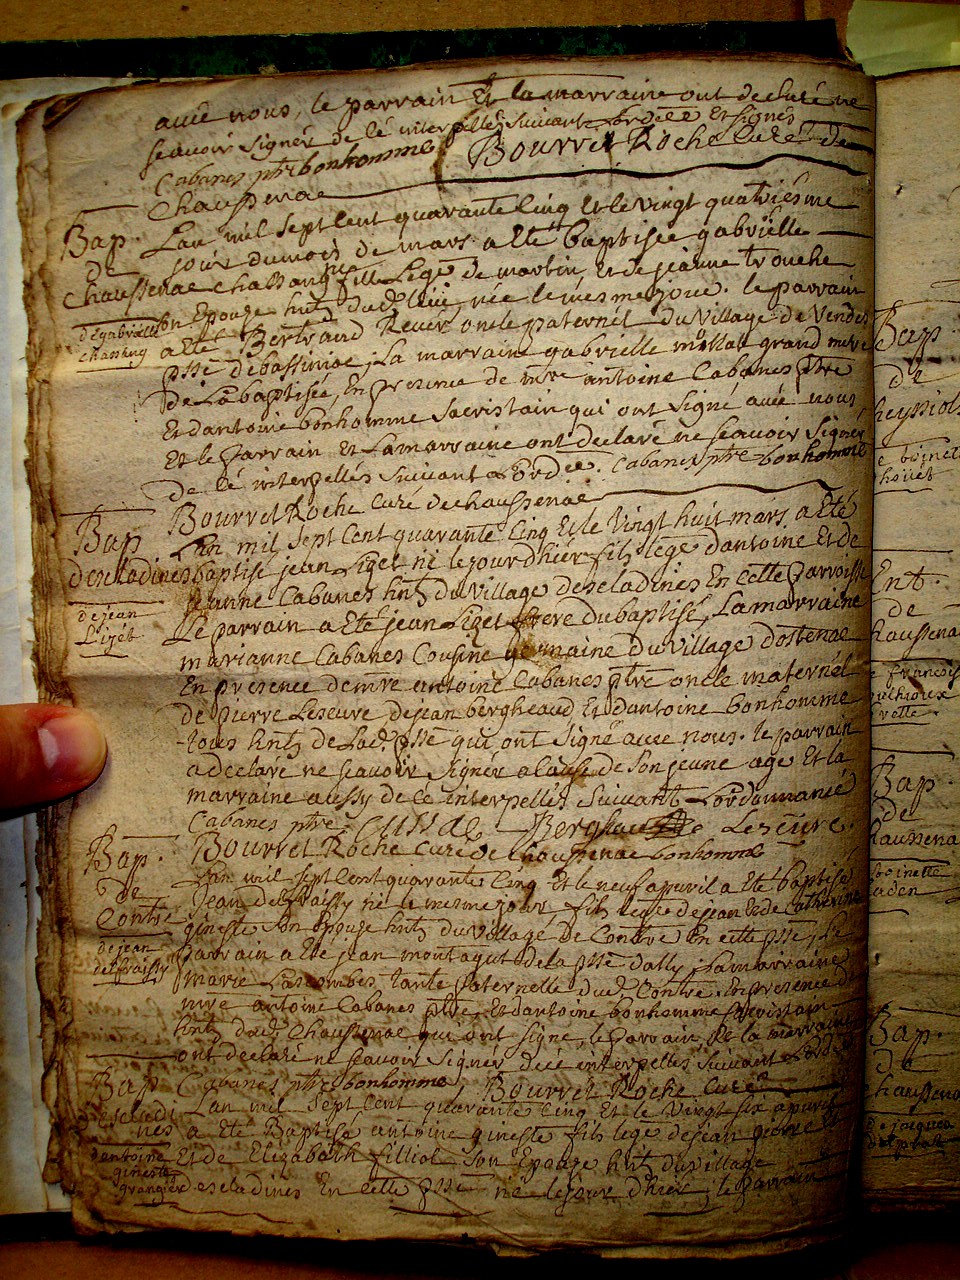 avec nous, le parrain Et la marraine ont declaré ne
scavoir signer de cé interpellés suivant Lordce Et signés
Cabanes ptre bonhomme Bourret Roche Curé de
Chaussenac
Bap. Lan mil sept Cent quarante Cinq Et le vingt quatriesme
de jour du mois de mars a Eté baptisée gabrielle
Chaussenac Chassang fille Lege de martin, Et de jeanne trouche
de gabrielle son Epouze hnts dud lieu née le mesme jour. le parrain
chassang a Eté Bertrand oncle paternel du village de Vendes
psse de bassiniac, La marraine gabrielle grand mere
de La baptisée, En presence de mre antoine Cabanes ptre
Et dantoine bonhomme sacristain qui ont signé avec nous
Et le parrain Et La marraine ont declaré ne scavoir signer
de cé interpellés suivant Lordce. Cabanes ptre bonhomme
Bourret Roche Curé de chaussenac
Bap. Lan mil sept Cent quarante Cinq Et le Vingt huit mars a Eté
descladines baptisé jean Lizet né le jour dhier fils lege dantoine Et de
de jean jeanne Cabanes hnts du village descladines En Cette parroisse
Lizet Le parrain a Eté jean Lizet frere du baptisé, La marraine
marianne Cabanes Cousine germaine du village dostenac
En presence de mre antoine Cabanes ptre oncle maternel
de pierre Leseure de jean bergheaud, Et dantoine bonhomme
tous hnts de Lad. psse qui ont signé avec nous. le parrain
a declaré ne scavoir signer a Cause de son jeune age Et la
marraine aussy de ce interpellés suivant Lordonnance
Cabanes ptre Leseure.
Bap. Bourret Roche Curé de Chaussenac bonhomme
de Lan mil sept Cent quarante Cinq Et le neuf apvril a Eté baptisé
Contre jean delfraissy né le mesme jour, fils lege de jean Et de Catherine
de jean gineste son Epouze hnts du village de Contre En cette psse, Le
delfraissy parrain a Eté jean montagut de la psse dally, La marraine
marie Lascombes tante paternelle dud Contre. En presence de
mre antoine Cabanes ptre, Et dantoine bonhomme sacristain
hnts dud. Chaussenac qui ont signé, le parrain Et la marraine
ont declaré ne scavoir signer de cé interpellés suivant Lordce
Bap. Cabanes ptre bonhomme Bourret Roche Curé
Lan mil sept Cent quarante Cinq Et le Vingt six apvril
a Eté Baptisé antoine gineste fils lege de jean
dantoine Et de Elizabeth filliol son Epouze hnts du village
gineste descladines En Cette psse né le jour dhier, le parrain
Bap.
de
Ent.
de
Chaussenac
Bap.
de
Chaussenac
Bap.
de
Chaussenac